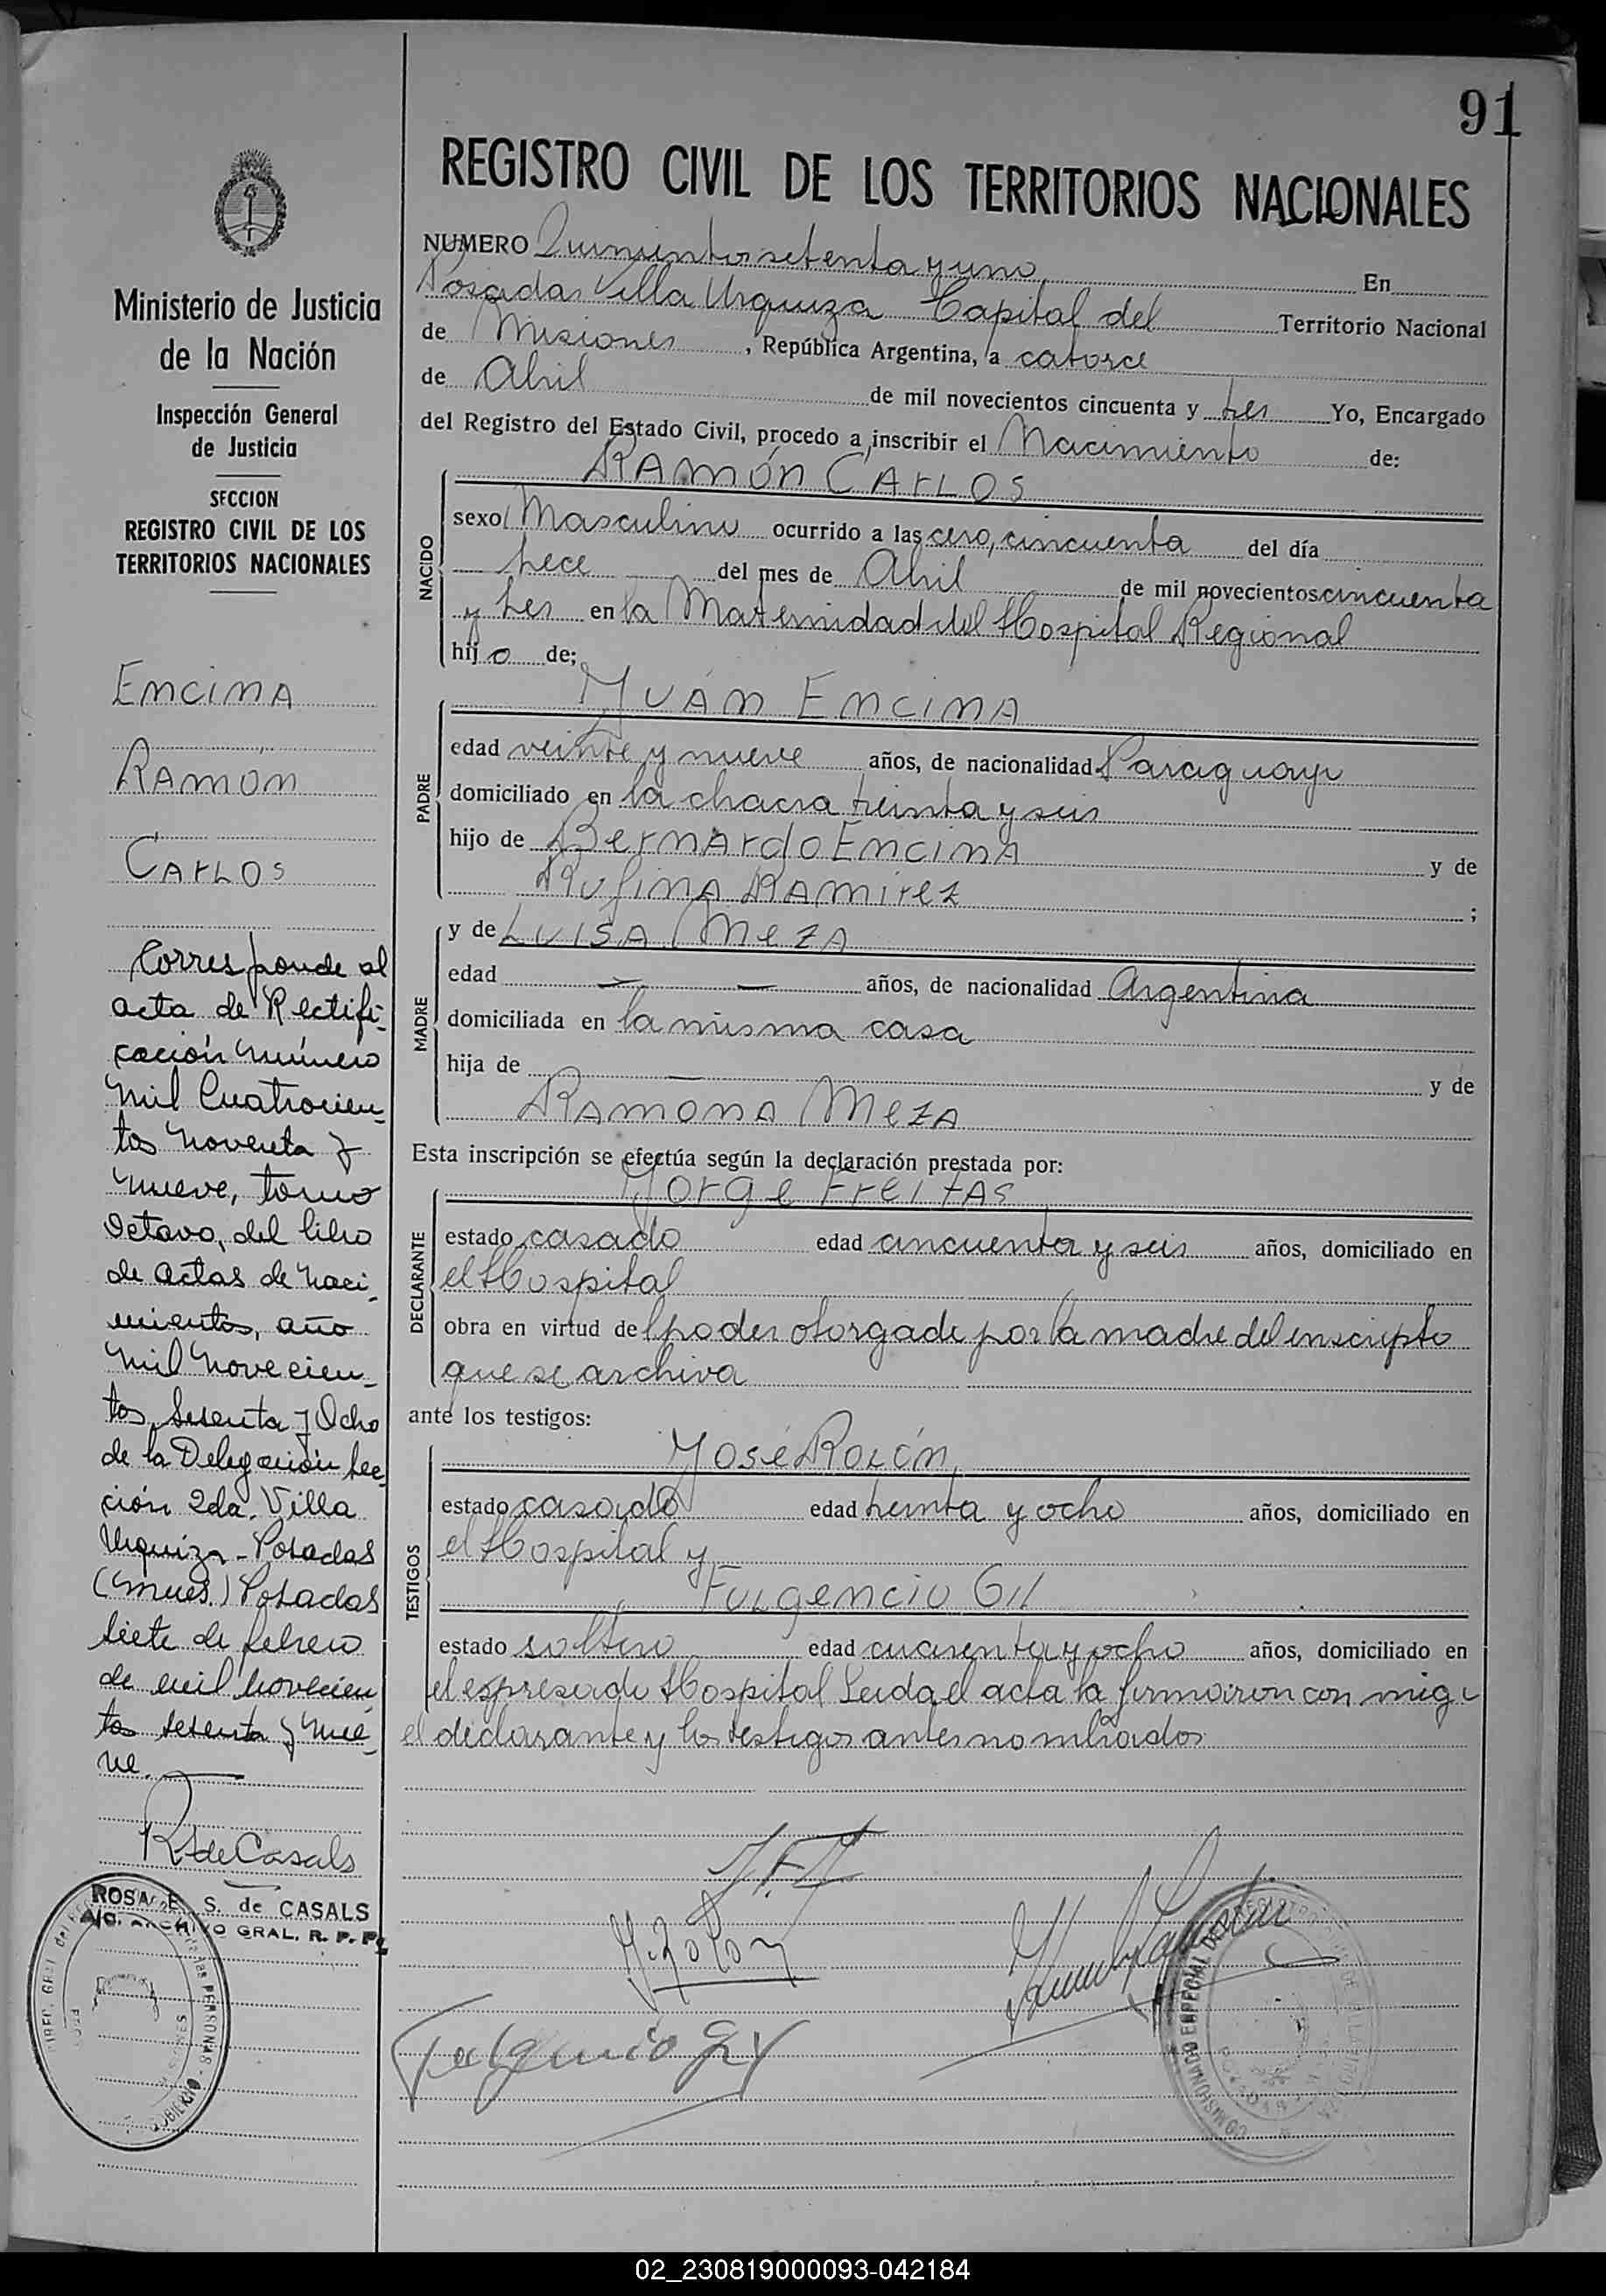 91
REGISTRO CIVIL DE LOS TERRITORIOS NACIONALES
Ministerio de Justicia
de la Nación
Inspección General
de Justicia
SECCION
REGISTRO CIVIL DE LOS
TERRITORIOS NACIONALES
Encina
Ramón
Carlos
Corresponde al
acta de Rectifi-
cación número
mil Cuatrocien-
tos noventa y
nueve, tomo
Octavo, del libro
de actas de naci-
mientos, año
mil novecien-
tos, Setenta y Ocho
de la Delegación Sec-
ción 2da. Villa
Urquiza - Posadas
(Mnes.) Posadas
siete de febrero
de mil novecien
tos setenta y nue-
ve.
R S de Casals
ROSA E. S. de CASALS
A/C. ARCHIVO GRAL. R. P. P.
NUMERO Quinientos setenta y uno En
Posadas Villa Urquiza Capital del Territorio Nacional
de Misiones, República Argentina, a catorce
de Abril de mil novecientos cincuenta y tres Yo, Encargado
del Registro del Estado Civil, procedo a inscribir el Nacimiento de:
NACIDO
RAMÓN CARLOS
sexo Masculino ocurrido a las cero, cincuenta del día
trece del mes de Abril de mil novecientos cincuenta
y tres en la Maternidad del Hospital Regional
hijo de;
PADRE
JUAN ENCINA
edad veinte y nueve años, de nacionalidad Paraguayo
domiciliado en la chacra treinta y seis
hijo de Bernardo Encina y de
Rufina Ramirez ;
MADRE
y de Luisa Meza
edad — — años, de nacionalidad Argentina
domiciliada en la misma casa
hija de — y de
Ramona Meza
Esta inscripción se efectúa según la declaración prestada por:
DECLARANTE
Jorge Freitas
estado casado edad cincuenta y seis años, domiciliado en
el Hospital
obra en virtud del poder otorgado por la madre del inscripto
que se archiva
ante los testigos:
TESTIGOS
José Rolón
estado casado edad treinta y ocho años, domiciliado en
el Hospital y
Fulgencio Gil
estado soltero edad cuarenta y ocho años, domiciliado en
el espresado Hospital Leida el acta la firmaron con migo
el declarante y los testigos antes nombrados
J. Rolon
Fulgencio Gil
02_230819000093-042184